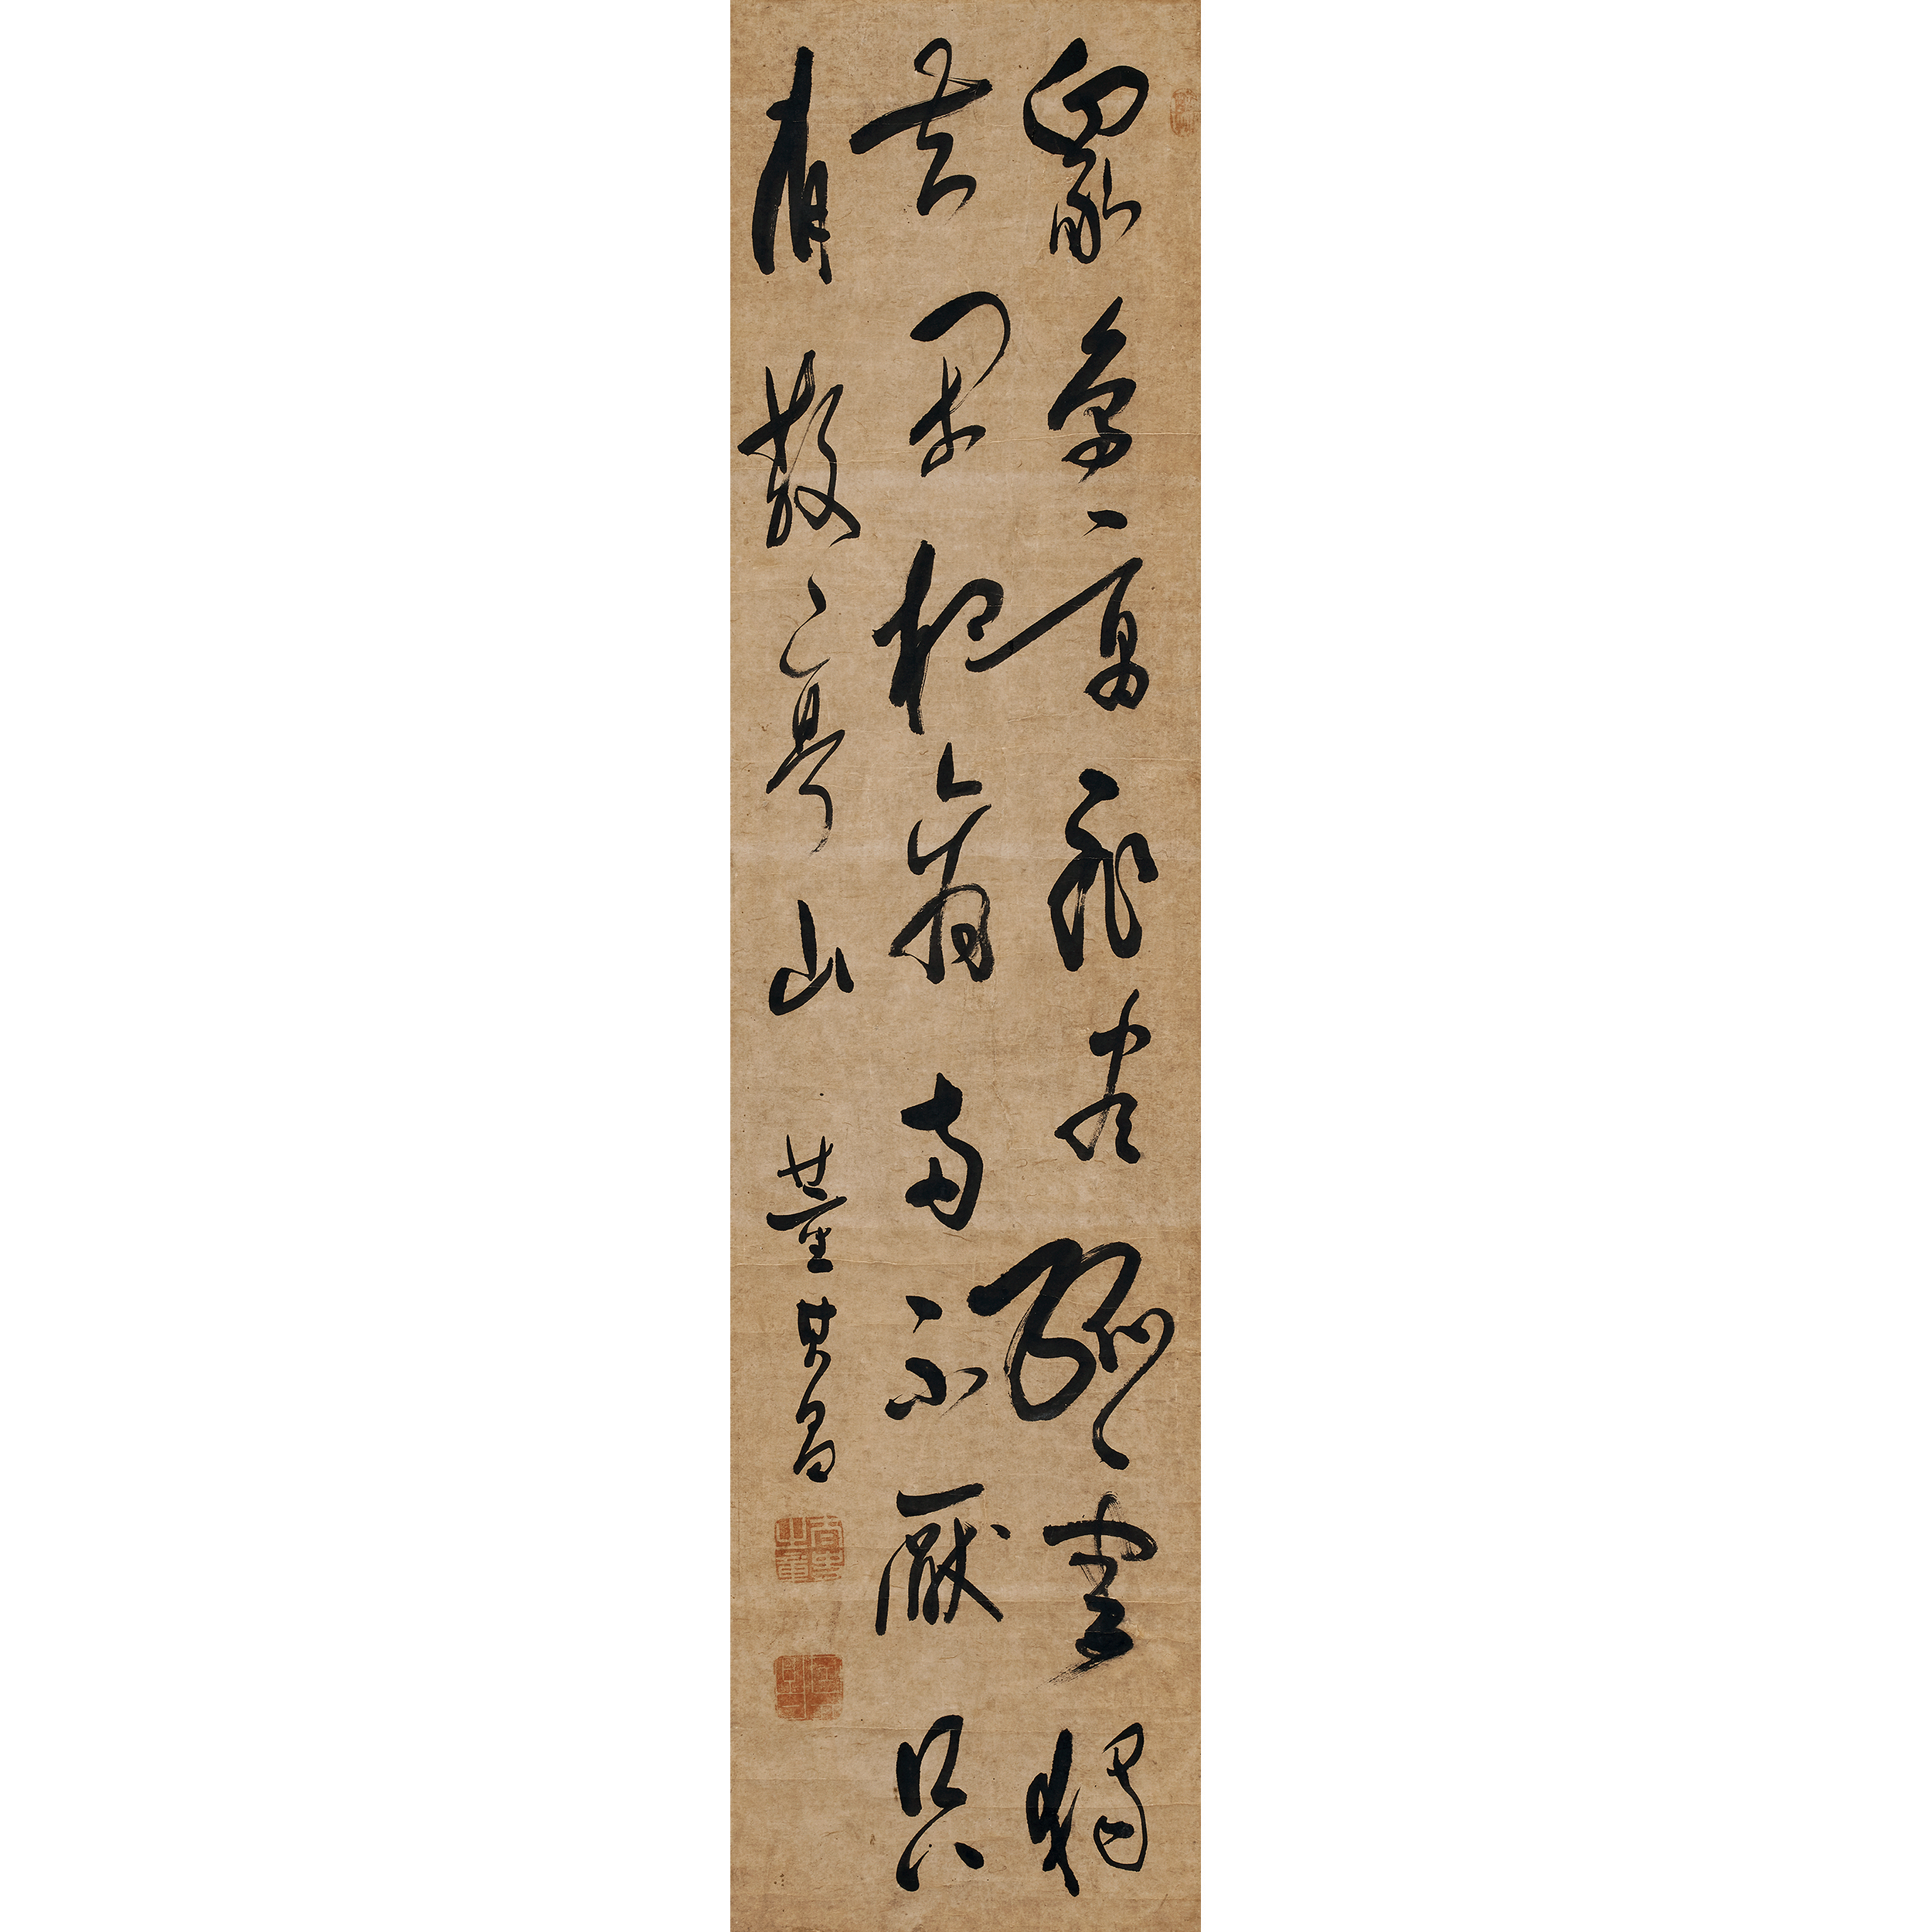 眾鳥高飛盡孤雲獨
去閑相看兩不厭只
有敬亭山 董其昌